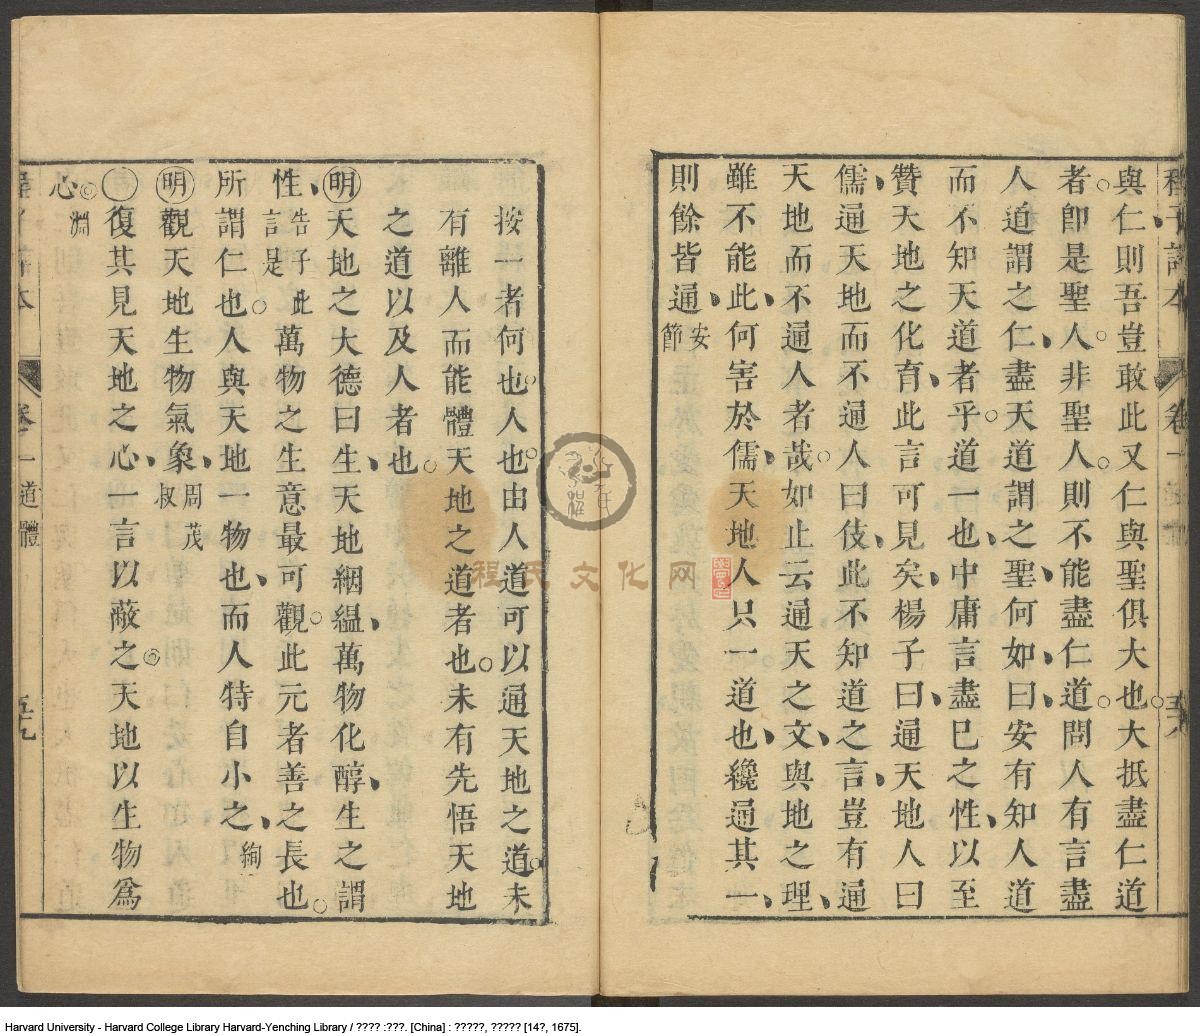 與仁則吾豈敢此又仁與聖俱大也大抵盡仁道
者卽是聖人非聖人則不能盡仁道問人有言盡
人道謂之仁盡天道謂之聖何如曰安有知人道
而不知天道者乎道一也中庸言盡巳之性以至
贊天地之化育此言可見矣楊子曰通天地人曰
儒通天地而不通人曰伎此不知道之言豈有通
天地而不通人者哉如止云通天之文與地之理
雖不能此何害於儒天地人只一道也纔通其一
則餘皆通安節
按一者何也人也由人道可以通天地之道未
有離人而能體天地之道者也未有先悟天地
之道以及人者也
明天地之大德曰生天地絪縕萬物化醇生之謂
性告子此言是萬物之生意最可觀此元者善之長也
所謂仁也人與天地一物也而人特自小之絢
明觀天地生物氣象周茂叔
復其見天地之心一言以蔽之天地以生物爲
心淵
卷一道體
程氏文化网
Harvard University - Harvard College Library Harvard-Yenching Library / ???? :???. [China] : ?????, ????? [14?, 1675].